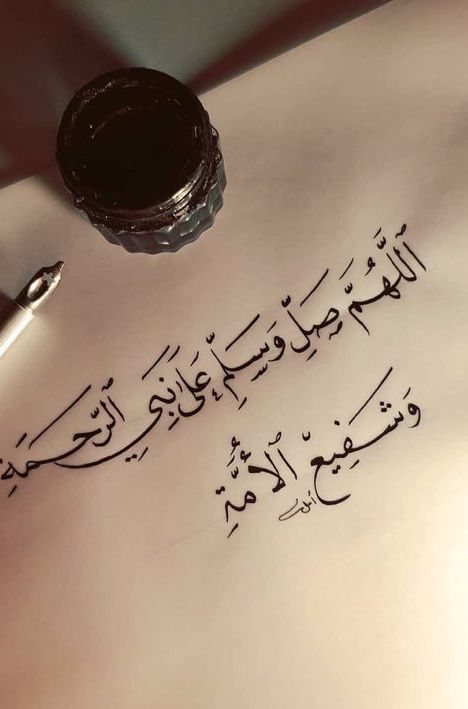 ٱللَّهُمَّ صَلِّ وَسَلِّمْ عَلَىٰ نَبِيِّ ٱلرَّحْمَةِ
وَشَفِيعِ ٱلْأُمَّةِ